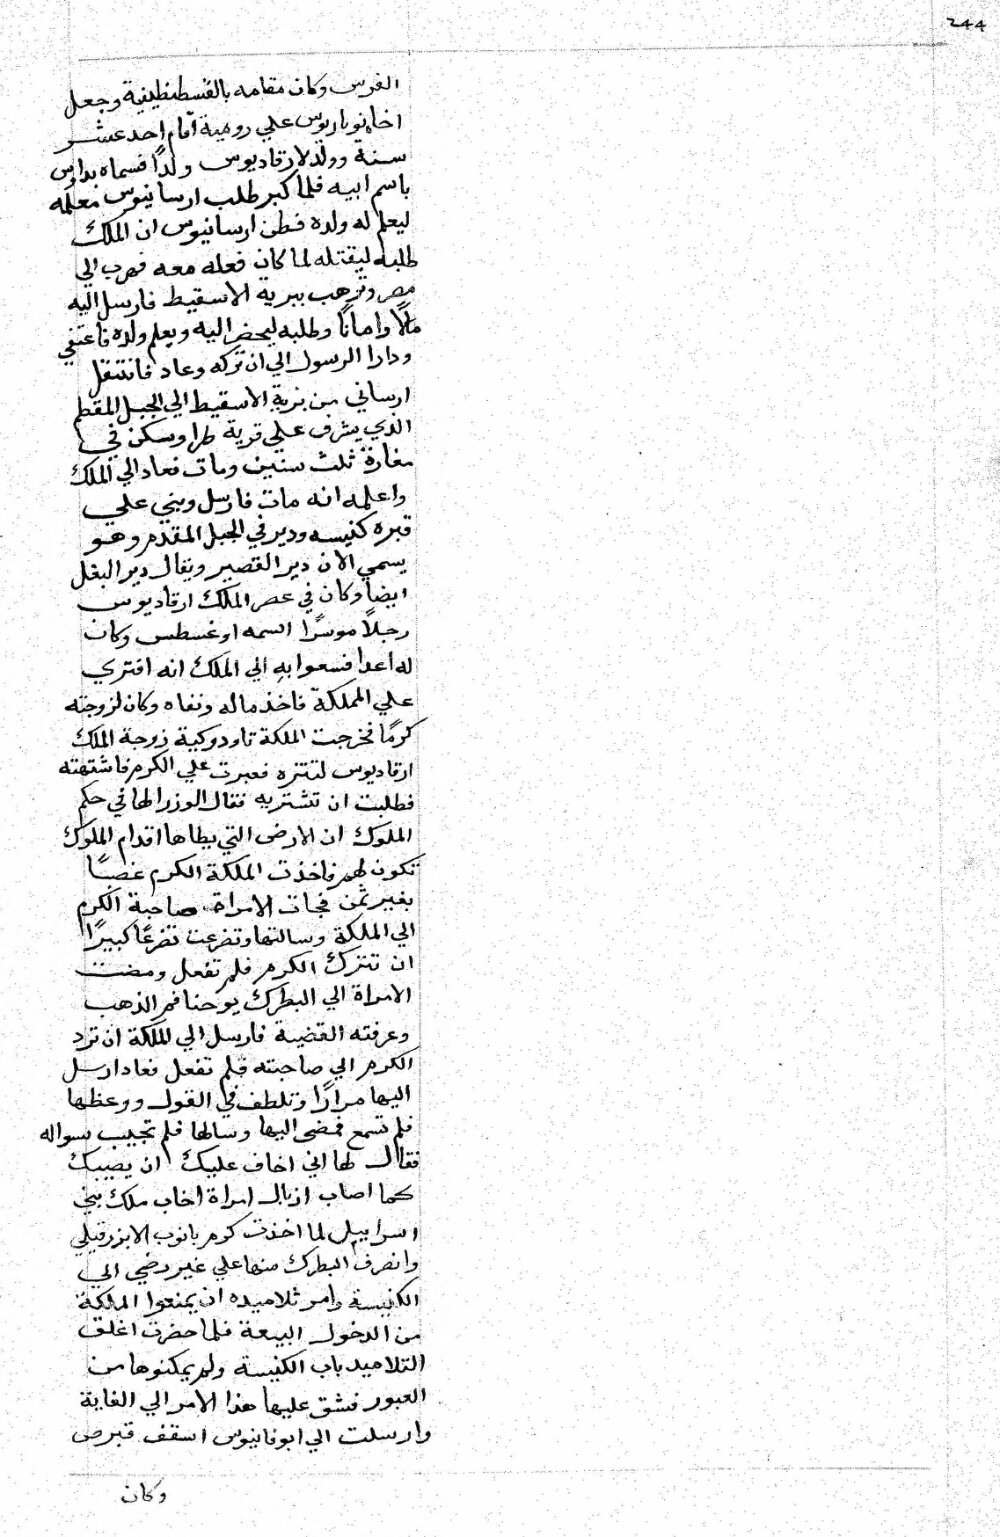 ٢٤٤
الفرس وكان مقامه بالقسطنطينية وجعل
اخاه نوباريوس علي رومية أقام احد عشر
سنة وولد لارقاديوس ولدًا فسماه بداوس
باسم ابيه فلما كبر طلب ارسانيوس معلمه
ليعلم له ولده فظن ارسانيوس ان الملك
طلبه ليقتله لما كان فعله معه فهرب الي
مصر وترهب ببرية الاسقيط فارسل اليه
مالًا وامانًا وطلبه ليحضر اليه ويعلم ولده فاعتفي
ودارا الرسول الي ان تركه وعاد فانتقل
ارساني من برية الاسقيط الي الجبل المقطم
الذي يشرف علي قرية طرا وسكن في
مغارة ثلث سنين ومات فعاد الي الملك
واعلمه انه مات فارسل وبني علي
قبره كنيسه ودير في الجبل المقدم وهو
يسمي الان دير القصير ويقال دير البغل
ايضًا وكان في عصر الملك ارقاديوس
رجلًا موسرًا اسمه اوغسطس وكان
له اعدا فسعوا به الي الملك انه افتري
علي المملكة فاخذ ماله ونفاه وكان لزوجته
كرمًا فخرجت الملكة تاودوكية زوجة الملك
ارقاديوس لتتنزه فعبرت علي الكرم فاشتهته
فطلبت ان تشتريه فقال الوزرا لها في حكم
الملوك ان الارض التي يطاها اقدام الملوك
تكون لهم فاخذت الملكة الكرم غصبًا
بغير ثمن فجات الامراة صاحبة الكرم
الي الملكة وسالتها وتضرعت تضرعًا كبيرًا
ان تترك الكرم فلم تفعل ومضت
الامراة الي البطرك يوحنا فم الذهب
وعرفته القضية فارسل الي الملكة ان ترد
الكرم الي صاحبته فلم تفعل فعاد ارسل
اليها مرارًا وتلطف في القول ووعظها
فلم تسمع فمضي اليها وسالها فلم تجيب سواله
فقال لها اني اخاف عليك ان يصيبك
كما اصاب ازبال امراة اخاب ملك بني
اسراييل لما اخذت كرم بانوب الابزرقيلي
وانصرف البطرك منها علي غير رضي الي
الكنيسة وامر تلاميده ان يمنعوا الملكة
من الدخول البيعة فلما حضرت اغلق
التلاميد باب الكنيسة ولم يمكنوها من
العبور فشق عليها هذا الامر الي الغاية
وارسلت الي ابوفانيوس اسقف قبرص
وكان